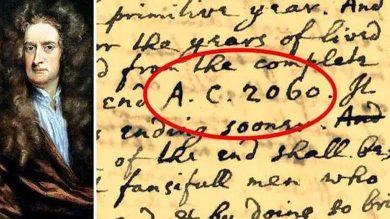 primitive year. And
or the years of lived
d from the complete
end A. C. 2060. It
ending sooner. And
of the end shall be
fansifull men who
& by doing so br